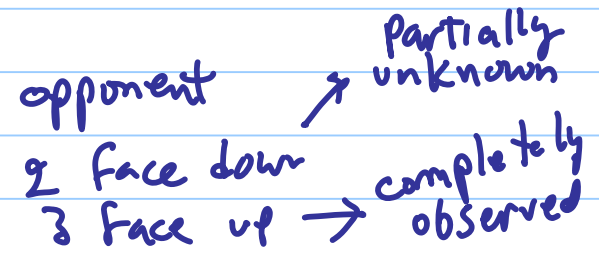 opponent
2 face down ↗ Partially unknown
3 face up → completely observed